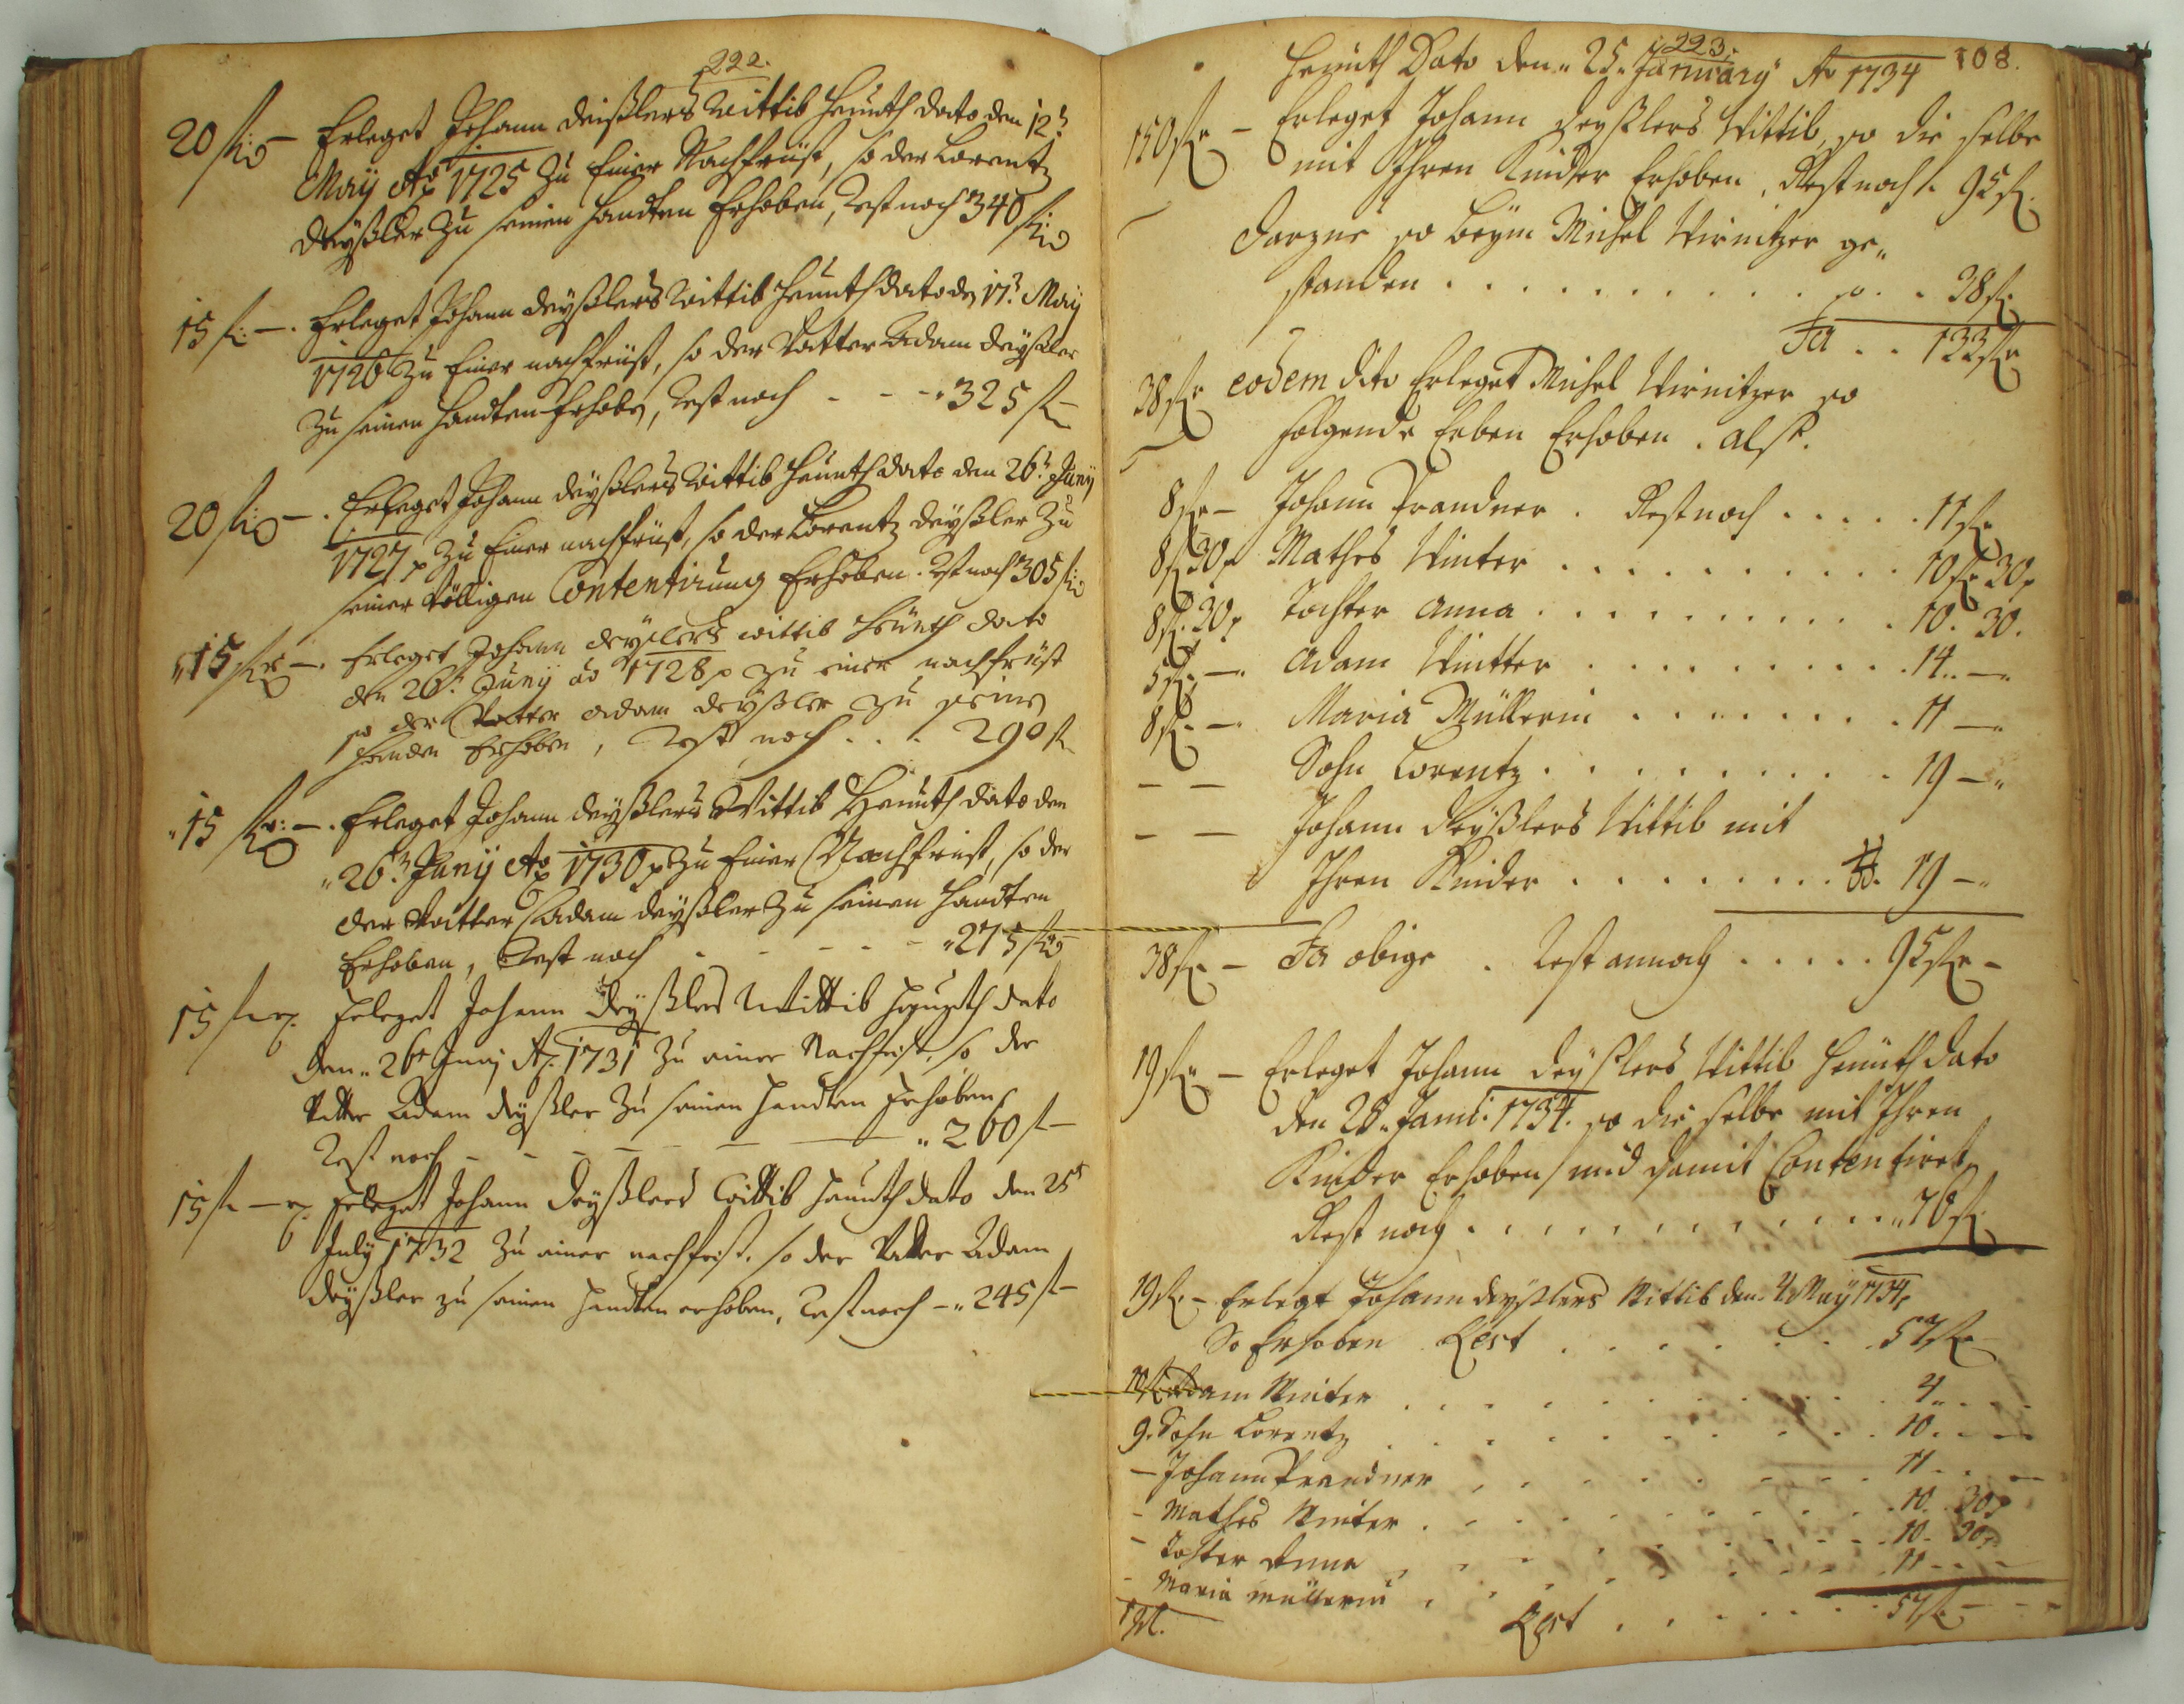 222.
20 fl: – Erleget Johann Deißlers Wittib heüuth dato den 12t
Maÿ Ao 1725 zu Einer Nachfrüst, so der Lorentz
Deÿßler zu seinen handten Erhoben, Rest noch 340 fl:
15 fl: –. Erleget Johann Deÿßlers Wittib heuuth dato dn 17t Maÿ
1726 zu Einer nachfrüst, so der Vatter Adam Deÿßler
zu seinen handten Erhobn, Rest noch - - - 325 fl –
20 fl – . Erleget Johann Deÿßlers Wittib heuuth dato den 26t Junÿ
1727 zu Einer nachfrüst, so der Lorentz Deÿßler zu
seiner völligen Contentirung Erhoben. Rest noch 305 fl:
15 fl –. Erleget Johann Deÿslers wittib heüuth dato
den 26t Junÿ ao 1728 zu einer nachfrüst
so der Vatter adam Deÿßler zu seinen
handen Erhoben, Rest noch . . . 290 fl
15 fl: –. Erleget Johann Deÿßlers Wittib Heüuth dato den
26t Junÿ Ao 1730 zu Einer Nachfrist, so der
der Vatter Adam Deÿßler zu seinen handten
Erhoben, Rest noch - - - - - 275 fl –
15 fl Erleget Johann Deÿßlers Wittib heuuth dato
den 26t Junÿ Ao. 1731 zu einer Nachfrist, so der
Vatter Adam Deÿßler zu seinen handten Erhoben,
Rest noch - - - - - 260 fl –
15 fl – Erleget Johann Deÿßlers Wittib heuuth dato den 25t
Julÿ 1732 zu einer nachfrist. so der Vatter Adam
Deÿßler zu seinen handten erhoben, Rest noch – 245 fl –
223. 108.
Heüuth Dato den 25. January Ao 1734
150 fl – Erleget Johann Deÿßlers Wittib, so die selbe
mit Ihren Kinder Erhoben, Rest noch 95 fl.
Darzue so beÿm Michel Wirnitzer ge„
standen . . . . . . . . . . . 38 fl.
Sa . . 133 fl
38 fl eodem dito Erleget Michel Wirnitzer so
folgende Erben Erhoben. alß.
8 fl – Johann Prandner . Rest noch . . . . . 11 fl
8 fl 30 Mathes Winter . . . . . . . . . . 10 fl 30
8 fl. 30 Tochter Anna . . . . . . . . . . 10. 30.
5 fl. – Adam Wintter . . . . . . . . . . 14. –
8 fl. – Maria Müllerin . . . . . . . . . 11 –
– – Sohn Lorentz . . . . . . . . . . 19 –
– – Johann Deÿßlers Wittib mit
Ihren Kinder . . . . . . . . . . 19 –
38 fl – Sa obige . Rest annoch . . . . . 95 fl –
19 fl – Erleget Johann Deÿßlers Wittib heüuth dato
den 28. Janu: 1734. so die selbe mit Ihren
Kinder Erhoben, und damit Contentiret,
Rest noch . . . . . . . . . . . . 76 fl.
19 fl. – Erlegt Johann Deÿßlers Wittib den 4 Maÿ 1734
So Erhoben Rest . . . . . . 57 fl
10 fl Adam Winter . . . . . . . . . . 4 . . .
9. Sohn Lorentz . . . . . . . . . . 10. . –
– Johann Prandner . . . . . . . . . 11 . . –
– Mathes Winter . . . . . . . . . . 10. 30
– Tochter Anna . . . . . . . . . . 10. 30
– Maria Müllerin . . . . . . . . . 11 – –
19 fl. Rest . . . . . . 57 fl – –